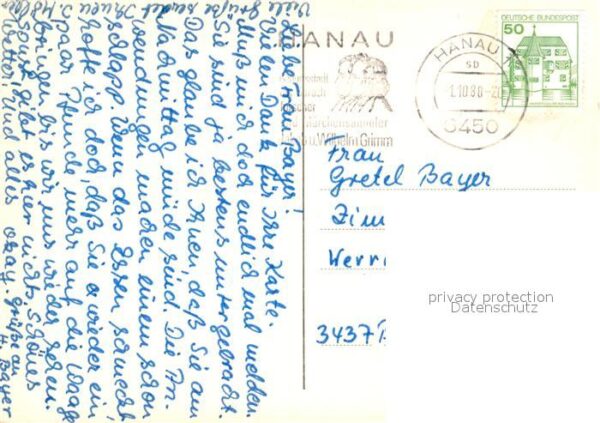 Viele Grüße sendet Ihnen J. Hölzer
Liebe Frau Bayer!
Vielen Dank für Ihre Karte.
Muß mich doch endlich mal melden.
Sie sind ja bestens untergebracht.
Da glaube ich Ihnen, daß Sie am
Nachmittag müde sind. Die An-
wendungen machen einem schon
schlapp. Wenn das Essen schmeckt
hoffe ich doch, daß Sie wieder ein
paar Pfunde mehr auf die Waage
bringen bis wir uns wieder sehen.
Sonst gibt es hier nichts Schönes
weiter. Und alles okay. Grüße an
H. Bayer
HANAU
Märchensammler
u. Wilhelm Grimm
HANAU
SD
1.10.80
6450
50
DEUTSCHE BUNDESPOST
Frau
Gretel Bayer
Zim
Werr
3437
privacy protection
Datenschutz